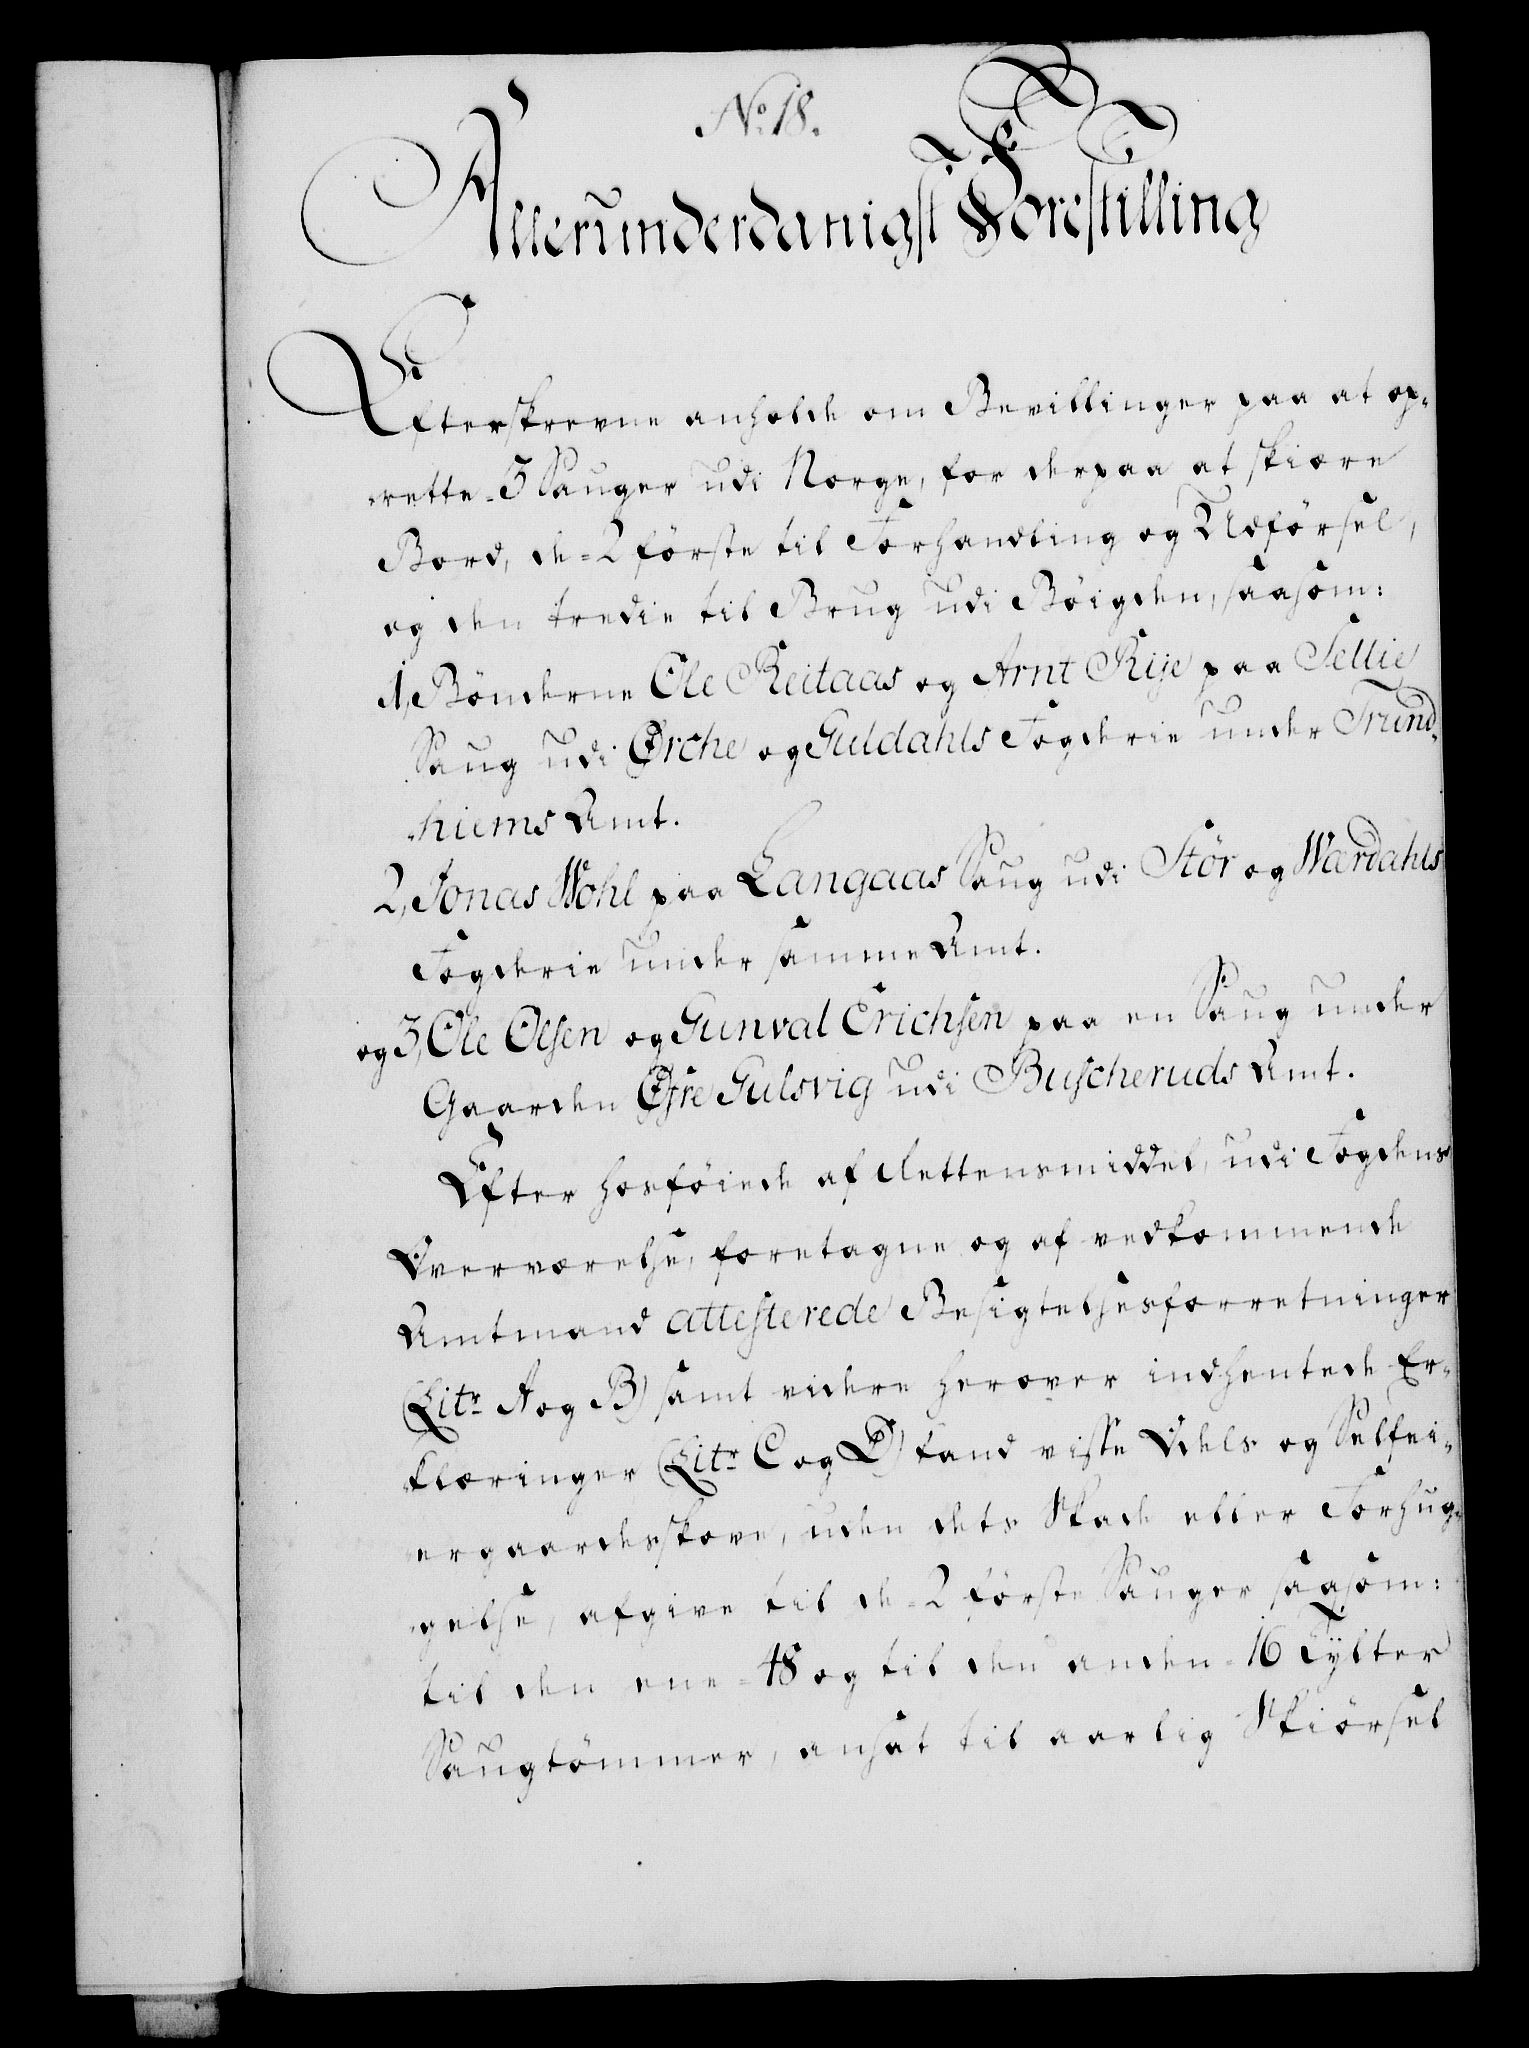 No. 18.
Allerunderdanigst Forestilling
Efterskrevne anholde om Bevillinger paa at op-
rette 3 Sauger udi Norge, for derpaa at skiære
Bord, de 2 förste til Forhandling og Udförsel,
og den tredie til Brug udi Böigden, saasom:
1, Bönderne Ole Reitaas og Arnt Rije paa Sellie
Saug udi Ørche og Guldahls Fogderie under Trund-
hiems Amt.
2, Jonas Wohl paa Langaas Saug udi Stör og Wærdahls
Fogderie under samme Amt.
og 3, Ole Olsen og Gunval Erichsen paa en Saug under
Gaarden Øfre Gulsvig udi Buscheruds Amt.
Efter hosföiede af Rettensmiddel, udi Fogdens
Overværelse, foretagne og af vedkommende
Amtmand attesterede Besigtelsesforretninger
(Litr A og B) samt videre herover indhentede Er-
klæringer (Litr C og D) kand visse Odels og Selfei-
ergaardesskove, uden dets Skade eller Forhug-
gelse, afgive til de 2 förste Sauger saasom:
til den ene 48 og til den anden 16 Tylter
Saugtömmer, ansat til aarlig Skiörsel